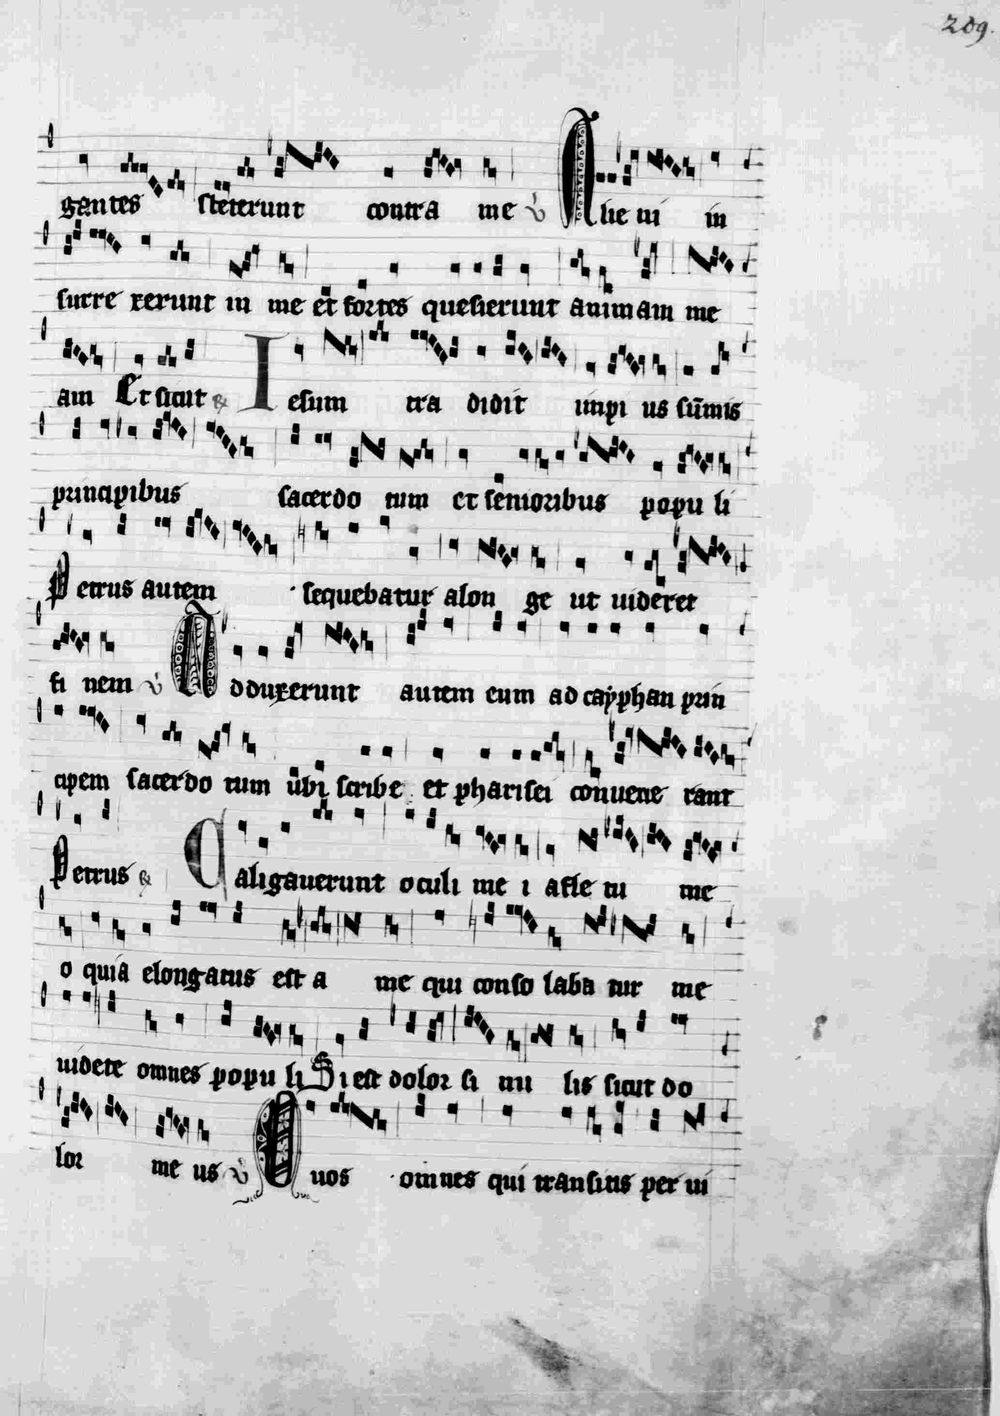 209.
gantes steterunt contra me ℣ Alieni in
surre xerunt in me et fortes quesierunt animam me
am Et sicut ℟ Iesum tra didit impi us sum̄is
principibus sacerdo tum et senioribus popu li
Petrus autem sequebatur alon ge ut uideret
fi nem ℣ Adduxerunt autem eum ad cayphan prin
cipem sacerdo tum ubi scribe et pharisei conuene rant
Petrus ℟ Caligauerunt oculi me i a fle tu me
o quia elongatus est a me qui conso laba tur me
uidete omnes popu li Si est dolor si mi lis sicut do
lor me us ℣ O uos omnes qui transitis per ui